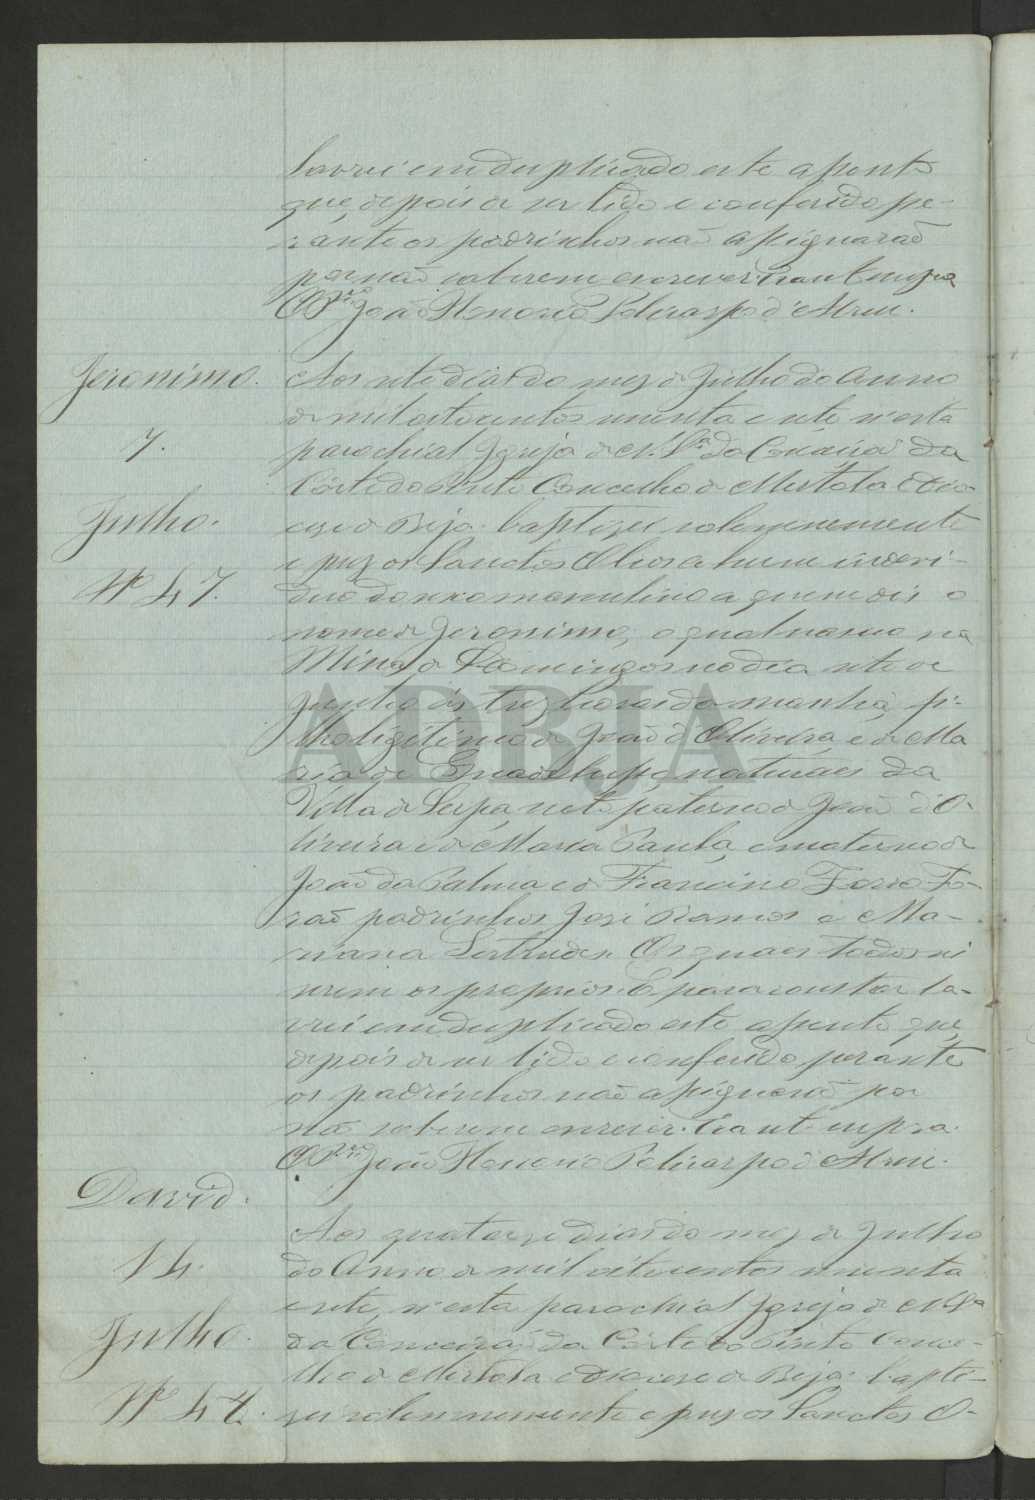 lavrei em duplicado este assento
que, depois de ser lido e conferido pe-
rante os padrinhos não assignarão
por não saberem escrever. Era ut supra
O P.re João Honorio Policarpo d'Abreu.
Jeronimo.
7.
Julho.
Nº 47.
Aos sete dias do mez de Julho do Anno
de mil oitocentos noventa e sete n'esta
parochial Igreja de N. Srª da Conceição da
Côrte do Pinto Concelho de Mertola e Dio-
cese de Beja baptizei solemnemente
e puz os Sanctos Oleos a hum indevi-
duo do sexo masculino a quem dei o
nome de Jeronimo, o qual nasceu na
Mina de S. Domingos no dia sete de
Junho ás trez horas da manhã, fi-
lho ligitimo de João d'Oliveira, e de Ma
ria de Guadelupe, naturaes da
Villa de Serpa, neto paterno de João d'O-
liveira e de Maria Paula, e materno de
João da Palma e de Francisca Fo-
rão padrinhos José Ramos e Ma-
riana Gertrudes. Os quaes todos sei
serem os proprios. E para constar la-
vrei em duplicado este assento que,
depois de ser lido e conferido perante
os padrinhos não assignarão por
não saberem escrever. Era ut supra.
O P.re João Honorio Policarpo d'Abreu.
David.
14.
Julho.
Nº 48.
Aos quatorze dias do mez de Julho
do Anno de mil oitocentos noventa
e sete, n'esta parochial Igreja de N. Srª
da Conceição da Côrte do Pinto Conce-
lho de Mertola e Diocese de Beja baptí-
zei solemnemente e puz os Sanctos O-
ADBJA